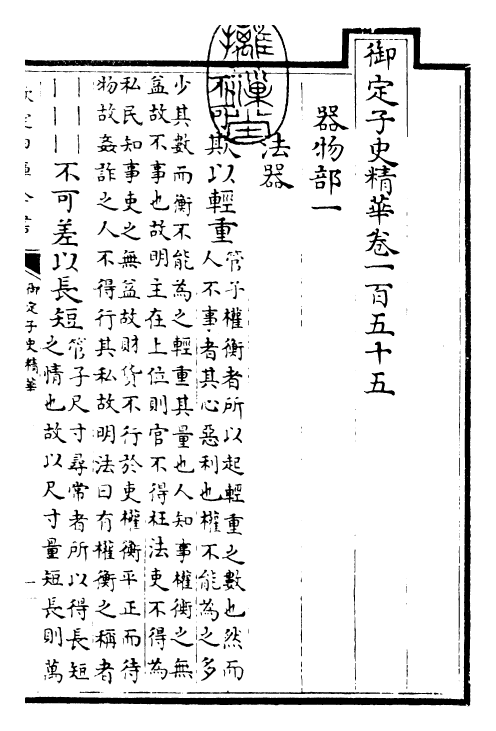 御定子史精華卷一百五十五
器物部一
法器
不可欺以輕重
管子權衡者所以起輕重之數也然而
人不事者其心惡利也權不能為之多
少其數而衡不能為之輕重其量也人知事權衡之無
益故不事也故明主在上位則官不得枉法吏不得為
私民知事吏之無益故財貨不行於吏權衡平正而待
物故姦詐之人不得行其私故明法曰有權衡之稱者
丨丨丨
丨丨丨
不可差以長短
管子尺寸尋常者所以得長短
之情也故以尺寸量短長則萬
欽定四庫全書
御定子史精華
一
摛藻堂